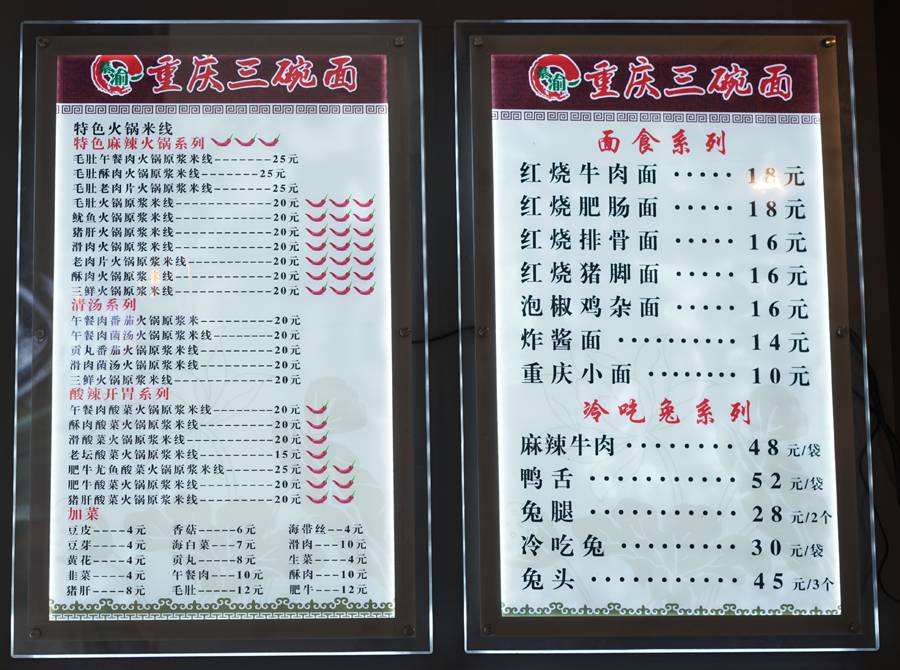 渝
重庆三碗面
特色火锅米线
特色麻辣火锅系列
毛肚午餐肉火锅原浆米线-------25元
毛肚酥肉火锅原浆米线-------25元
毛肚老肉片火锅原浆米线-------25元
毛肚火锅原浆米线------------20元
鱿鱼火锅原浆米线------------20元
猪肝火锅原浆米线------------20元
滑肉火锅原浆米线------------20元
老肉片火锅原浆米线----------20元
酥肉火锅原浆米线------------20元
三鲜火锅原浆米线------------20元
清汤系列
午餐肉番茄火锅原浆米---------20元
午餐肉菌汤火锅原浆米线-------20元
贡丸番茄火锅原浆米线---------20元
滑肉菌汤火锅原浆米线---------20元
三鲜火锅原浆米线------------20元
酸辣开胃系列
午餐肉酸菜火锅原浆米线-------20元
酥肉酸菜火锅原浆米线---------20元
滑酸菜火锅原浆米线----------20元
老坛酸菜火锅原浆米线---------15元
肥牛尤鱼酸菜火锅原浆米线------25元
肥牛酸菜火锅原浆米线---------20元
猪肝酸菜火锅原浆米线---------20元
加菜
豆皮----4元 香菇-----6元 海带丝--4元
豆芽----4元 海白菜---7元 滑肉---10元
黄花----4元 贡丸-----8元 生菜----4元
韭菜----4元 午餐肉---10元 酥肉---10元
猪肝----8元 毛肚-----12元 肥牛---12元
渝
重庆三碗面
面食系列
红烧牛肉面·····18元
红烧肥肠面·····18元
红烧排骨面·····16元
红烧猪脚面·····16元
泡椒鸡杂面·····16元
炸酱面··········14元
重庆小面········10元
冷吃兔系列
麻辣牛肉········48元/袋
鸭舌············52元/袋
兔腿············28元/2个
冷吃兔··········30元/袋
兔头············45元/3个